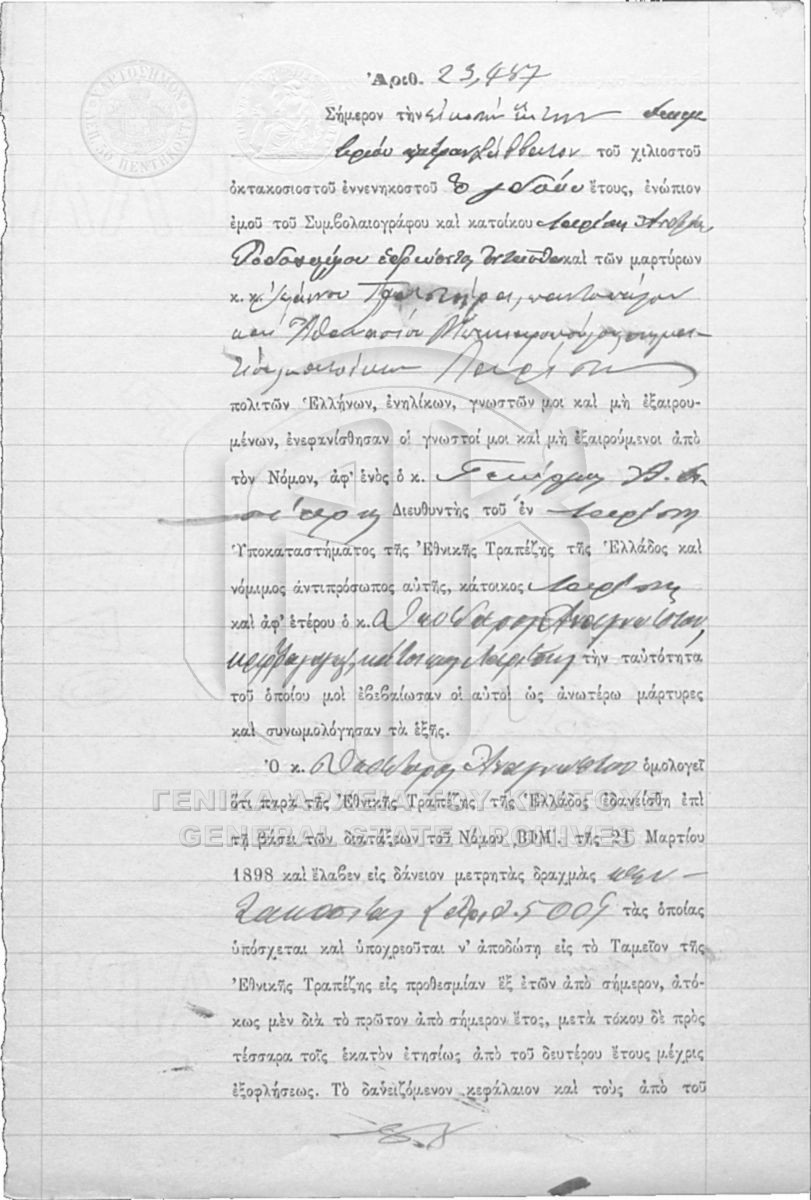 ΧΑΡΤΟΣΗΜΟΝ
ΛΕΠ. 50 ΠΕΝΤΗΚΟΝΤΑ
Ἀριθ. 23,487
Σήμερον τὴν εἰκοστὴν ἕκτην
ἡμέραν Σάββατον τοῦ χιλιοστοῦ
ὀκτακοσιοστοῦ ἐννενηκοστοῦ ὀγδόου ἔτους, ἐνώπιον
ἐμοῦ τοῦ Συμβολαιογράφου καὶ κατοίκου Λαρίσης
καὶ τῶν μαρτύρων
κ. κ. Ἰωάννου
καὶ Ἀθανασίου
Λαρίσης
πολιτῶν Ἑλλήνων, ἐνηλίκων, γνωστῶν μοι καὶ μὴ ἐξαιρου-
μένων, ἐνεφανίσθησαν οἱ γνωστοί μοι καὶ μὴ ἐξαιρούμενοι ἀπὸ
τὸν Νόμον, ἀφ' ἑνὸς ὁ κ.
Διευθυντὴς τοῦ ἐν Λαρίσῃ
Ὑποκαταστήματος τῆς Ἐθνικῆς Τραπέζης τῆς Ἑλλάδος καὶ
νόμιμος ἀντιπρόσωπος αὐτῆς, κάτοικος Λαρίσης
καὶ ἀφ' ἑτέρου ὁ κ. Θεόδωρος Ἀναγνώστου
κάτοικος Λαρίσης τὴν ταὐτότητα
τοῦ ὁποίου μοὶ ἐβεβαίωσαν οἱ αὐτοὶ ὡς ἀνωτέρω μάρτυρες
καὶ συνωμολόγησαν τὰ ἑξῆς.
Ὁ κ. Θεόδωρος Ἀναγνώστου ὁμολογεῖ
ὅτι παρὰ τῆς Ἐθνικῆς Τραπέζης τῆς Ἑλλάδος ἐδανείσθη ἐπὶ
ΓΕΝΙΚΑ ΑΡΧΕΙΑ ΤΟΥ ΚΡΑΤΟΥΣ
GENERAL STATE ARCHIVES
τῇ βάσει τῶν διατάξεων τοῦ Νόμου ͵ΒΦΜ΄. τῆς 21 Μαρτίου
1898 καὶ ἔλαβεν εἰς δάνειον μετρητὰς δραχμὰς πεν-
τακοσίας (ἀριθ. 500) τὰς ὁποίας
ὑπόσχεται καὶ ὑποχρεοῦται ν' ἀποδώσῃ εἰς τὸ Ταμεῖον τῆς
Ἐθνικῆς Τραπέζης εἰς προθεσμίαν ἓξ ἐτῶν ἀπὸ σήμερον, ἀτό-
κως μὲν διὰ τὸ πρῶτον ἀπὸ σήμερον ἔτος, μετὰ τόκου δὲ πρὸς
τέσσαρα τοῖς ἑκατὸν ἐτησίως ἀπὸ τοῦ δευτέρου ἔτους μέχρις
ἐξοφλήσεως. Τὸ δανειζόμενον κεφάλαιον καὶ τοὺς ἀπὸ τοῦ